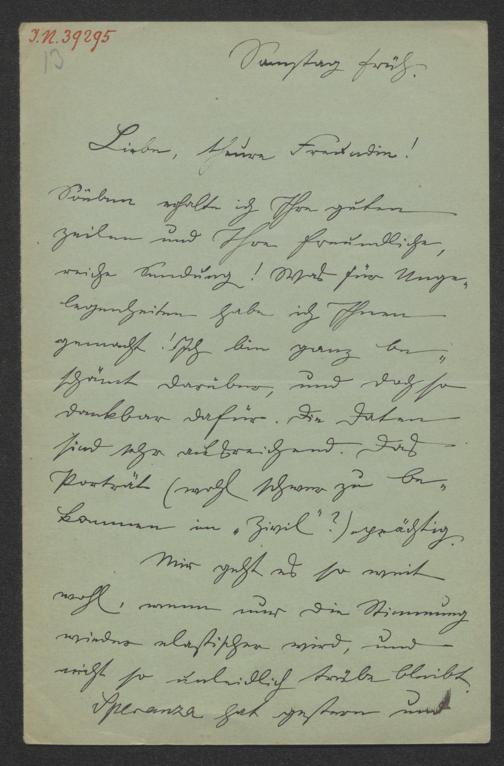 I.N. 39295
13
Samstag früh.
Liebe, theure Freundin!
Soeben erhalte ich Ihre guten
Zeilen und Ihre freundliche,
reiche Sendung! Was für Unge-
legenheiten habe ich Ihnen
gemacht! Ich bin ganz be-
schämt darüber, und doch so
dankbar dafür. Die Daten
sind sehr ausreichend. Das
Porträt (wohl schwer zu be-
kommen im „Zivil"?) prächtig.
Mir geht es so weit
wohl, wenn nur die Stimmung
wieder elastischer wird, und
nicht so unleidlich trübe bleibt.
Speranza hat gestern und